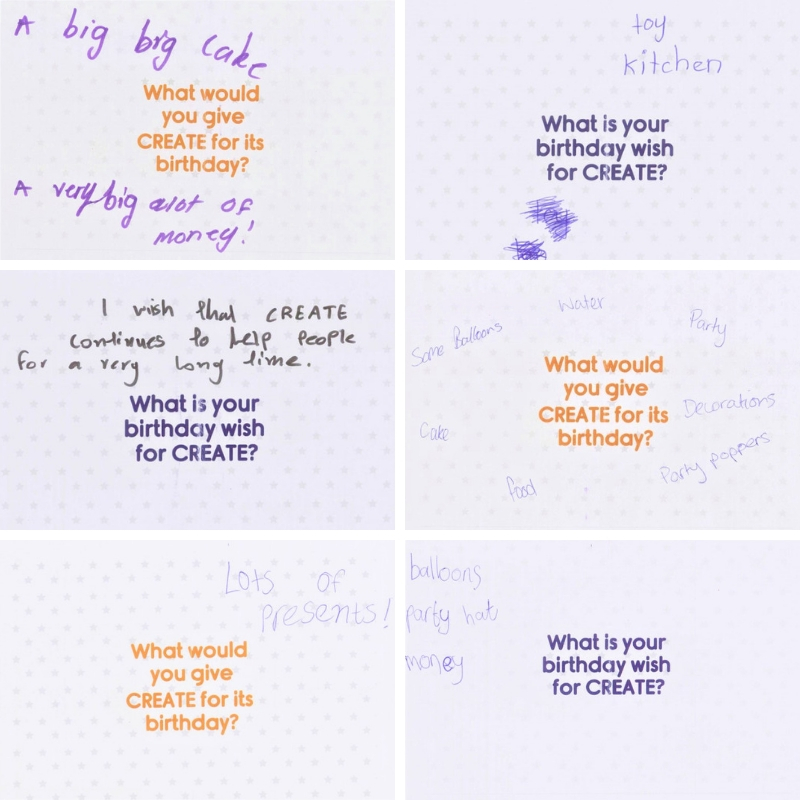 A big big cake
What would
you give
CREATE for its
birthday?
A very big alot of
money!
toy
kitchen
What is your
birthday wish
for CREATE?
I wish that CREATE
continues to help people
for a very long time.
What is your
birthday wish
for CREATE?
Water
Some Balloons
Party
What would
you give
CREATE for its
birthday?
Decorations
Cake
Party poppers
food
Lots of
presents!
What would
you give
CREATE for its
birthday?
balloons
party hat
money
What is your
birthday wish
for CREATE?